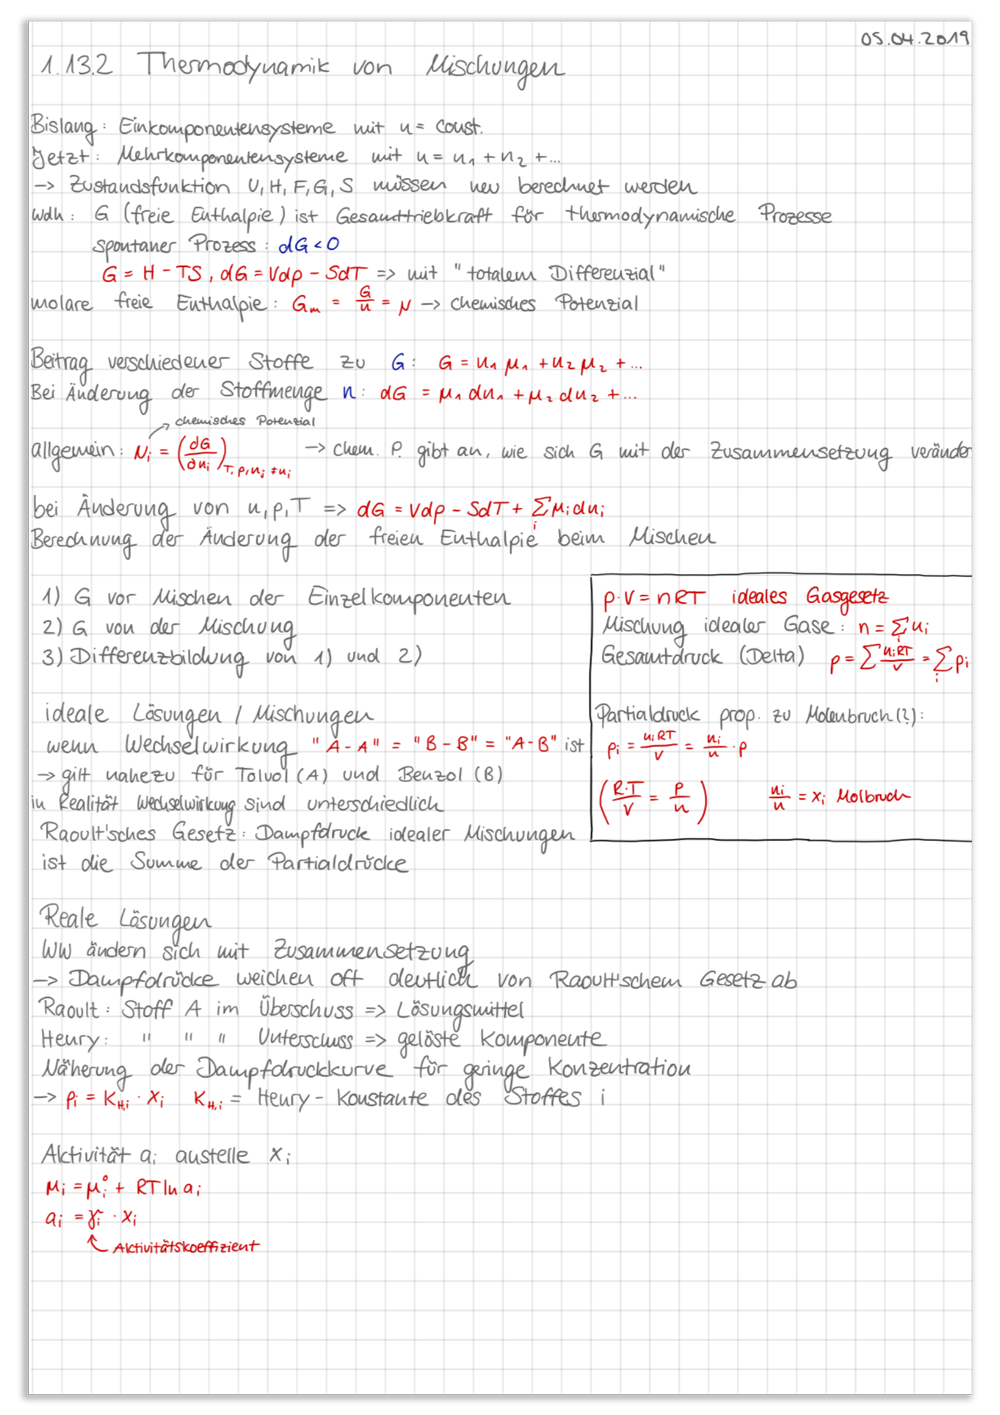 05.04.2019
1.13.2 Thermodynamik von Mischungen
Bislang: Einkomponentensysteme mit n = const.
Jetzt: Mehrkomponentensysteme mit n = n₁ + n₂ + ...
→ Zustandsfunktion U, H, F, G, S müssen neu berechnet werden
Wdh: G (freie Enthalpie) ist Gesamttriebkraft für thermodynamische Prozesse
spontaner Prozess: dG < 0
G = H - TS, dG = Vdp - SdT => mit "totalem Differenzial"
molare freie Enthalpie: Gₘ = G/n = μ → chemisches Potenzial
Beitrag verschiedener Stoffe zu G: G = n₁μ₁ + n₂μ₂ + ...
Bei Änderung der Stoffmenge n: dG = μ₁dn₁ + μ₂dn₂ + ...
chemisches Potenzial
allgemein: μᵢ = (∂G/∂nᵢ)T, p, nⱼ ≠ nᵢ → chem. P. gibt an, wie sich G mit der Zusammensetzung veränder
bei Änderung von n, p, T => dG = Vdp - SdT + Σᵢ μᵢdnᵢ
Berechnung der Änderung der freien Enthalpie beim Mischen
1) G vor Mischen der Einzelkomponenten
2) G von der Mischung
3) Differenzbildung von 1) und 2)
p·V = nRT ideales Gasgesetz
Mischung idealer Gase: n = Σᵢ nᵢ
Gesamtdruck (Delta) p = Σ nᵢRT/V = Σᵢ pᵢ
Partialdruck prop. zu Molenbruch(?):
pᵢ = nᵢRT/V = nᵢ/n · p
(R·T/V = p/n) nᵢ/n = xᵢ Molbruch
ideale Lösungen / Mischungen
wenn Wechselwirkung "A-A" = "B-B" = "A-B" ist
→ gilt nahezu für Toluol (A) und Benzol (B)
in Realität Wechselwirkung sind unterschiedlich
Raoult'sches Gesetz: Dampfdruck idealer Mischungen
ist die Summe der Partialdrücke
Reale Lösungen
WW ändern sich mit Zusammensetzung
→ Dampfdrücke weichen oft deutlich von Raoult'schem Gesetz ab
Raoult: Stoff A im Überschuss => Lösungsmittel
Henry: " " " Unterschuss => gelöste Komponente
Näherung der Dampfdruckkurve für geringe Konzentration
→ pᵢ = K_H,i · xᵢ K_H,i = Henry-Konstante des Stoffes i
Aktivität aᵢ anstelle xᵢ
μᵢ = μᵢ° + RT ln aᵢ
aᵢ = γᵢ · xᵢ
Aktivitätskoeffizient